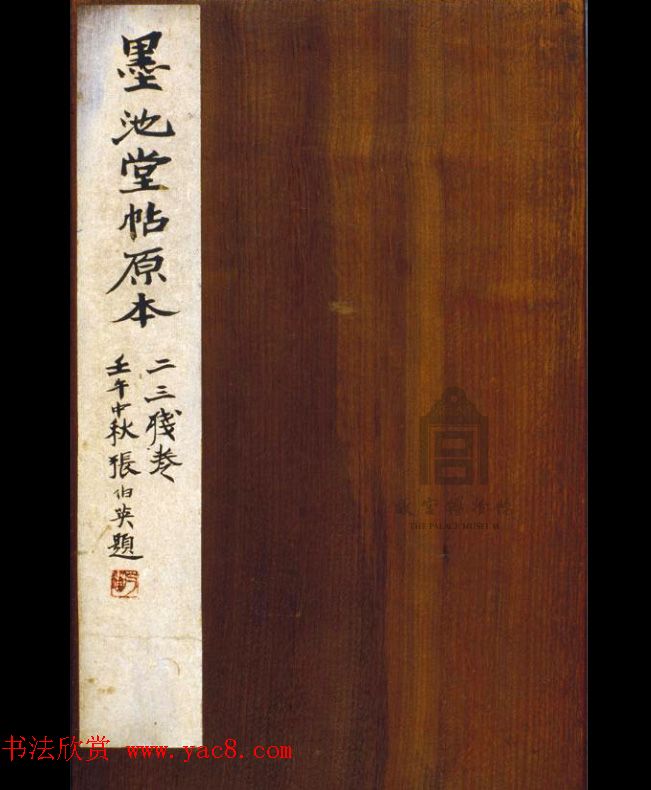 墨池堂帖原本
二三残卷
壬午中秋張伯英題
故宫博物院
THE PALACE MUSEUM
书法欣赏 www.yac8.com